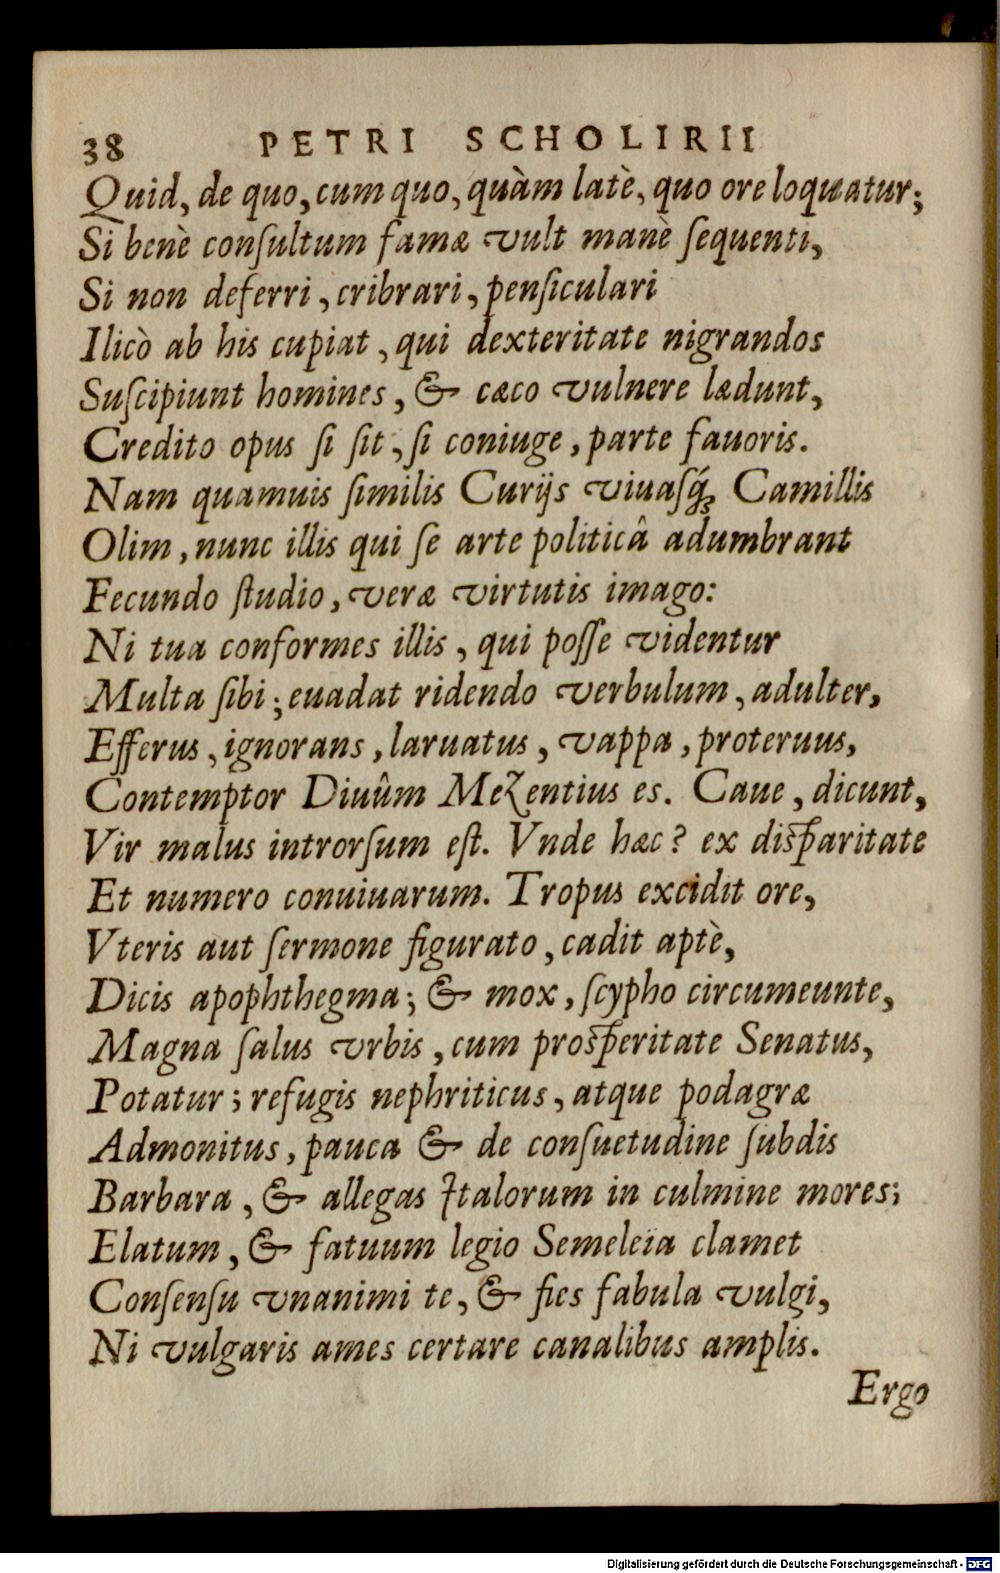 38 PETRI SCHOLIRII
Quid, de quo, cum quo, quàm latè, quo ore loquatur;
Si benè conſultum famæ vult manè ſequenti,
Si non deferri, cribrari, penſiculari
Ilicò ab his cupiat, qui dexteritate nigrandos
Suſcipiunt homines, & cæco vulnere lædunt,
Credito opus ſi ſit, ſi coniuge, parte fauoris.
Nam quamuis ſimilis Curijs viuaſq́ꝫ Camillis
Olim, nunc illis qui ſe arte politicâ adumbrant
Fecundo ſtudio, veræ virtutis imago:
Ni tua conformes illis, qui poſſe videntur
Multa ſibi; euadat ridendo verbulum, adulter,
Efferus, ignorans, laruatus, vappa, proteruus,
Contemptor Diuûm Mezentius es. Caue, dicunt,
Vir malus introrſum eſt. Vnde hæc? ex diſparitate
Et numero conuiuarum. Tropus excidit ore,
Vteris aut ſermone figurato, cadit aptè,
Dicis apophthegma; & mox, ſcypho circumeunte,
Magna ſalus vrbis, cum proſperitate Senatus,
Potatur; refugis nephriticus, atque podagræ
Admonitus, pauca & de conſuetudine ſubdis
Barbara, & allegas Italorum in culmine mores;
Elatum, & fatuum legio Semeleia clamet
Conſenſu vnanimi te, & fies fabula vulgi,
Ni vulgaris ames certare canalibus amplis.
Ergo
Digitalisierung gefördert durch die Deutsche Forschungsgemeinschaft - DFG